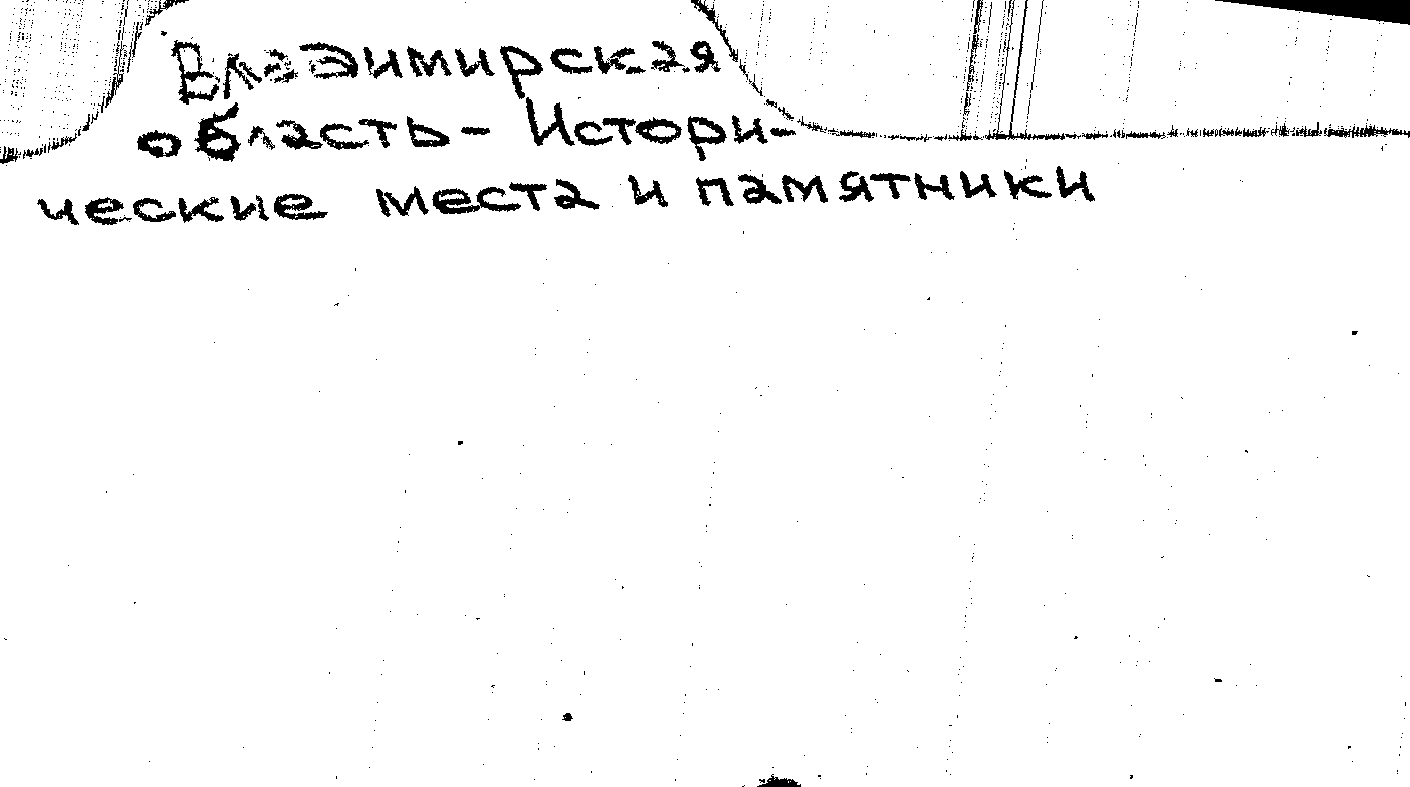 Владимирская
область- Истори-
ческие места и памятники